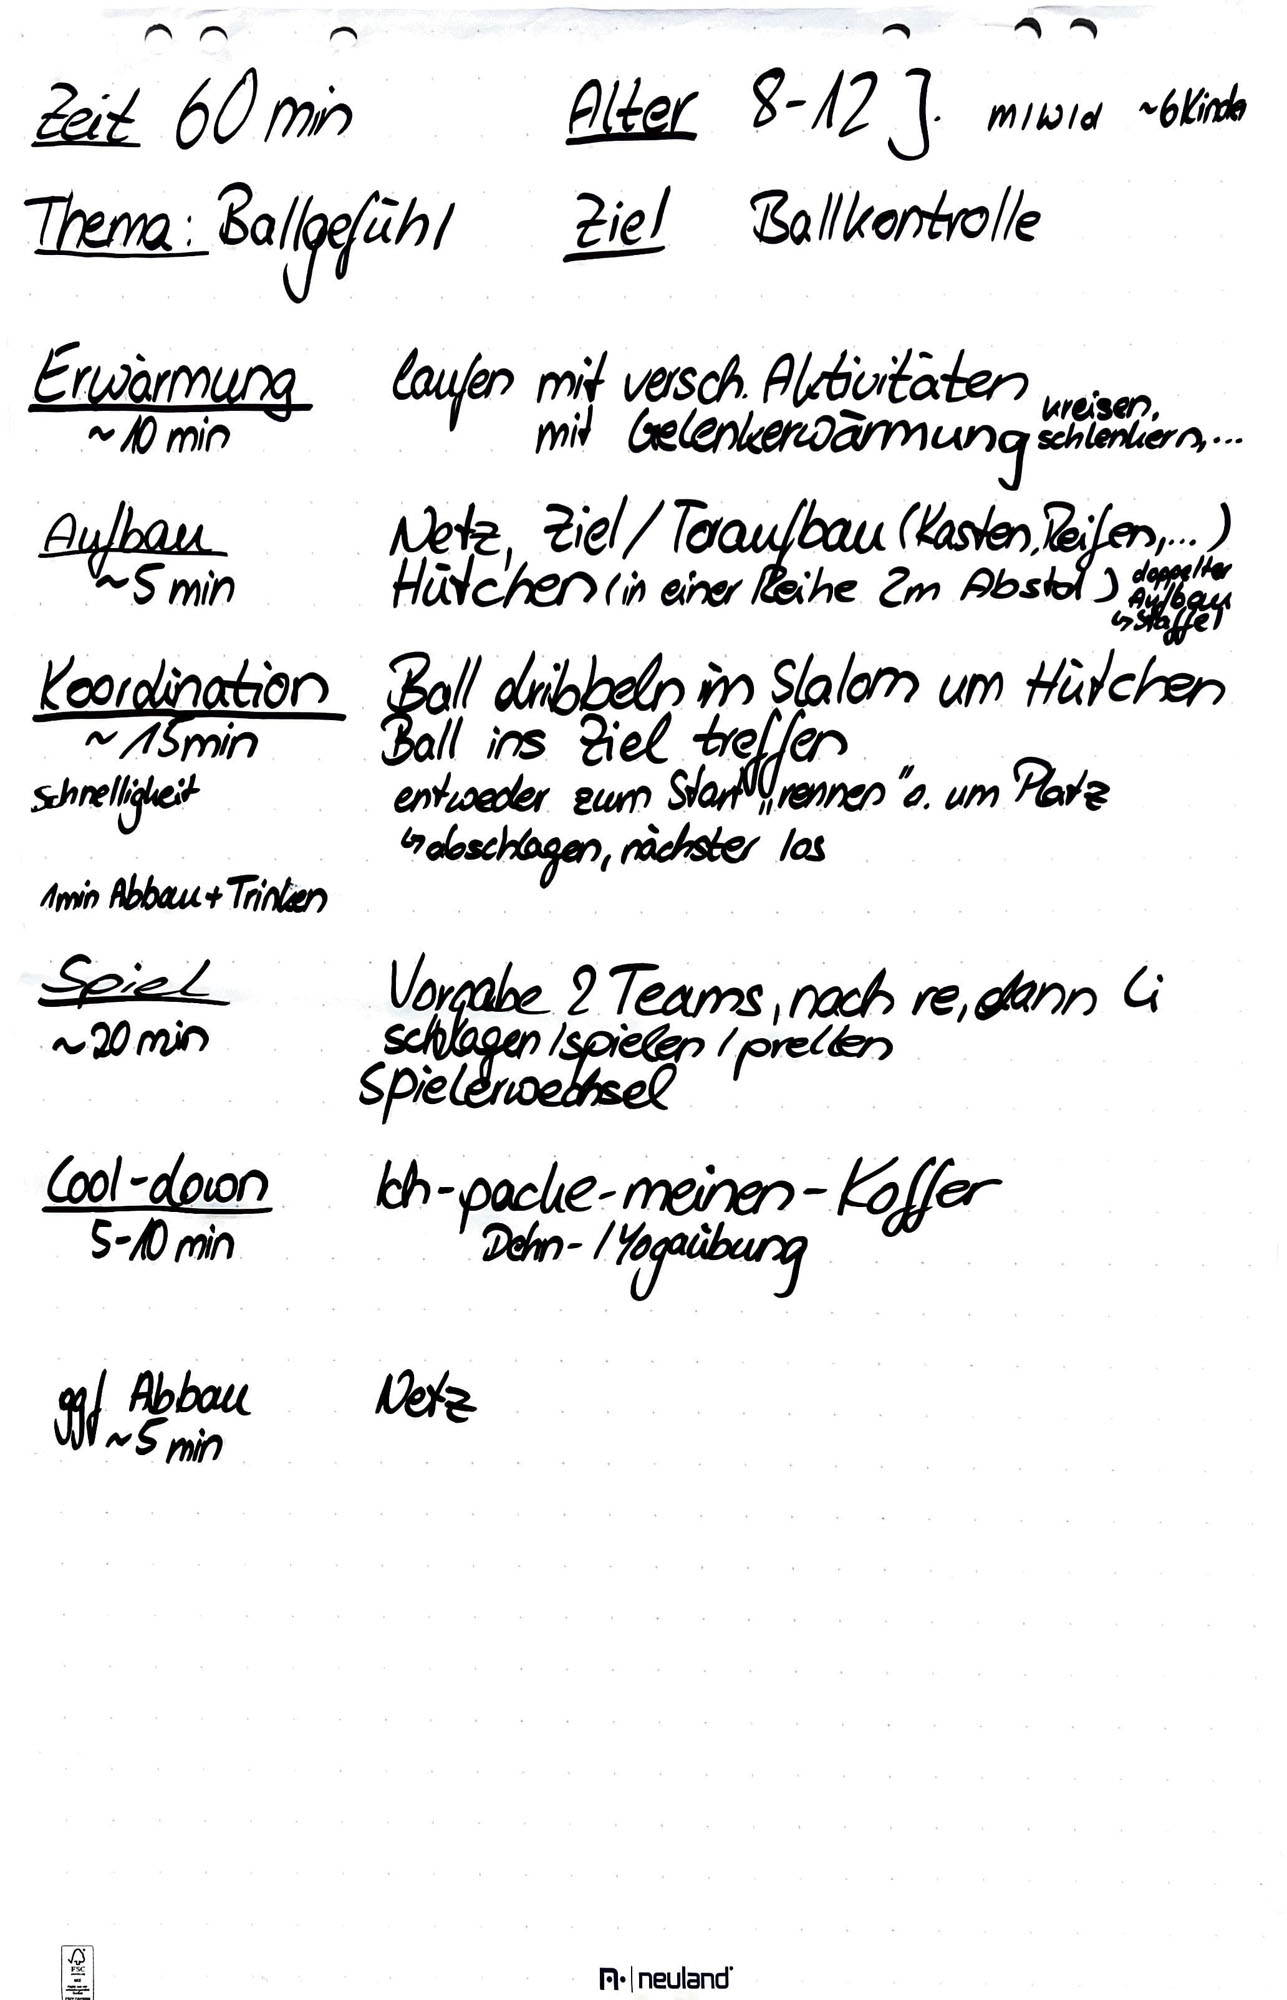 Zeit 60 min Alter 8-12 J. m/w/d ~6 Kinder
Thema: Ballgefühl Ziel Ballkontrolle
Erwärmung laufen mit versch. Aktivitäten
~10 min mit Gelenkerwärmung kreisen, schlenkern,...
Aufbau Netz, Ziel/Toraufbau (Kasten, Reifen,...)
~5 min Hütchen (in einer Reihe 2m Abstd) doppelter Aufbau ↳ Staffel
Koordination Ball dribbeln im Slalom um Hütchen
~15min Ball ins Ziel treffen
schnelligkeit entweder zum Start „rennen" o. um Platz
↳ abschlagen, nächster los
1min Abbau + Trinken
Spiel Vorgabe 2 Teams, nach re, dann li
~20 min schlagen/spielen/prellen
Spielerwechsel
Cool-down Ich-packe-meinen-Koffer
5-10 min Dehn-/Yogaübung
ggf Abbau Netz
~5 min
FSC
neuland